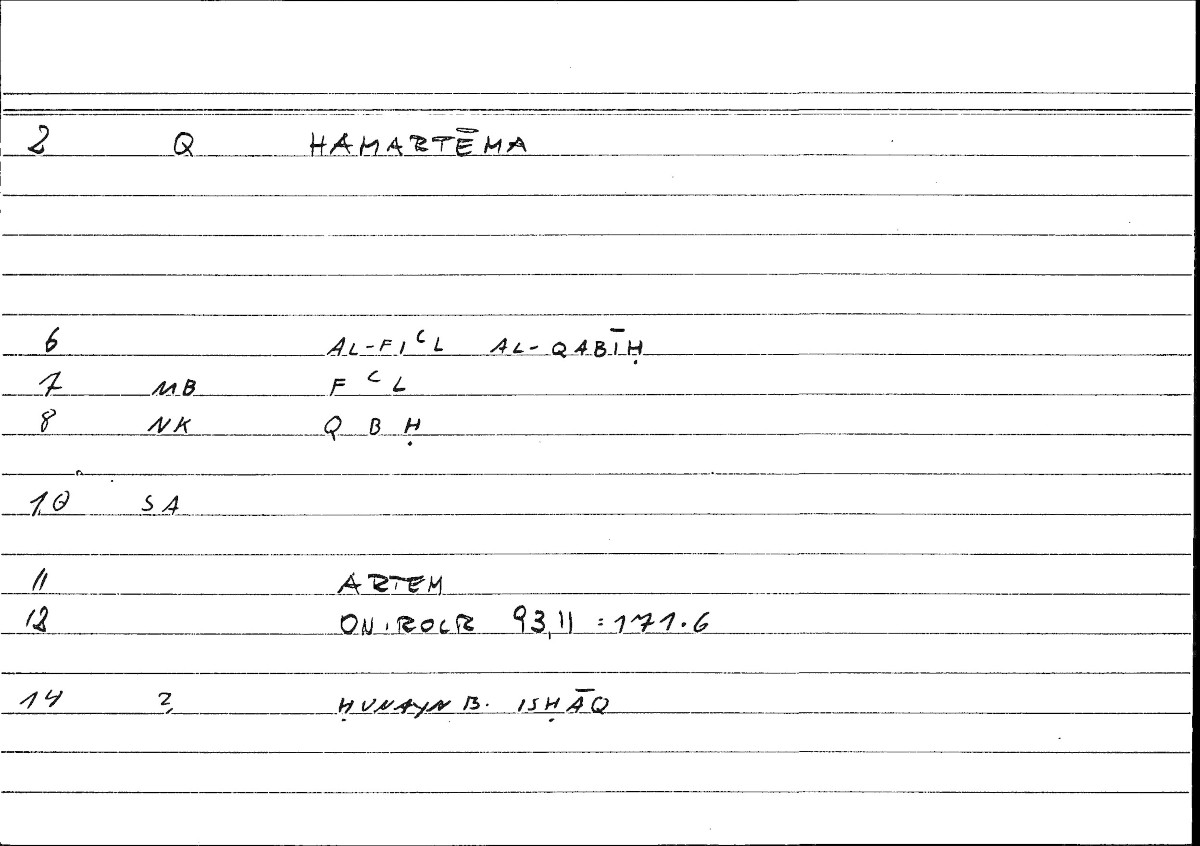 2 Q HAMARTĒMA
6 AL-FIʿL AL-QABĪḤ
7 MB F ʿ L
8 NK Q B Ḥ
10 SA
11 ARTEM
12 ONIROCR 93,11 = 171.6
14 2, ḤUNAYN B. ISḤĀQ